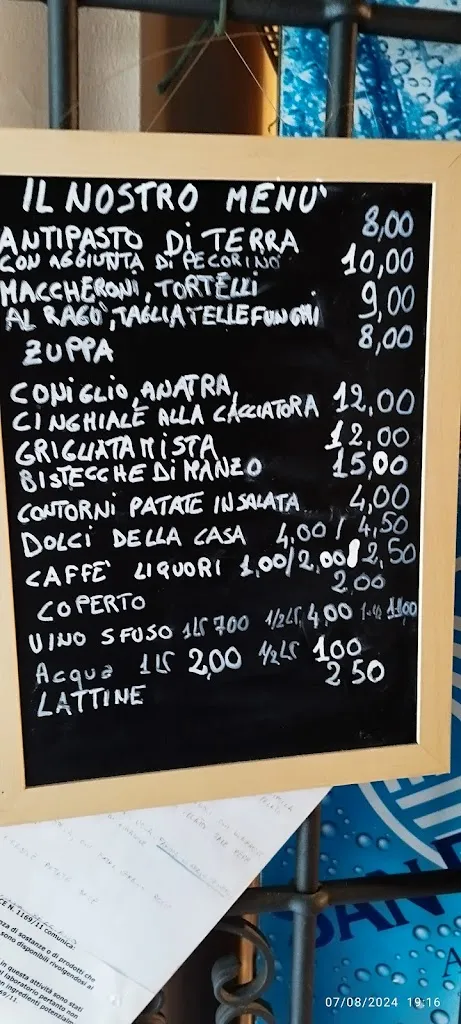 IL NOSTRO MENU'
ANTIPASTO DI TERRA 8,00
CON AGGIUNTA DI PECORINO 10,00
MACCHERONI, TORTELLI
AL RAGU', TAGLIATELLE FUNGHI 9,00
ZUPPA 8,00
CONIGLIO, ANATRA,
CINGHIALE ALLA CACCIATORA 12,00
GRIGLIATA MISTA 12,00
BISTECCHE DI MANZO 15,00
CONTORNI PATATE INSALATA 4,00
DOLCI DELLA CASA 4,00 / 4,50
CAFFE' LIQUORI 1,00/2,00/2,50
COPERTO 2,00
VINO SFUSO 1LT 700 1/2LT 4,00 1,00
Acqua 1LT 2,00 1/2LT 100
LATTINE 2 50
CE N. 1169/11 comunica
za di sostanze o di prodotti che
sono disponibili rivolgendosi al
in questa attività sono stati
laboratorio pertanto non
ingredienti potenzialm
69/11.
SAN
A
07/08/2024 19:16